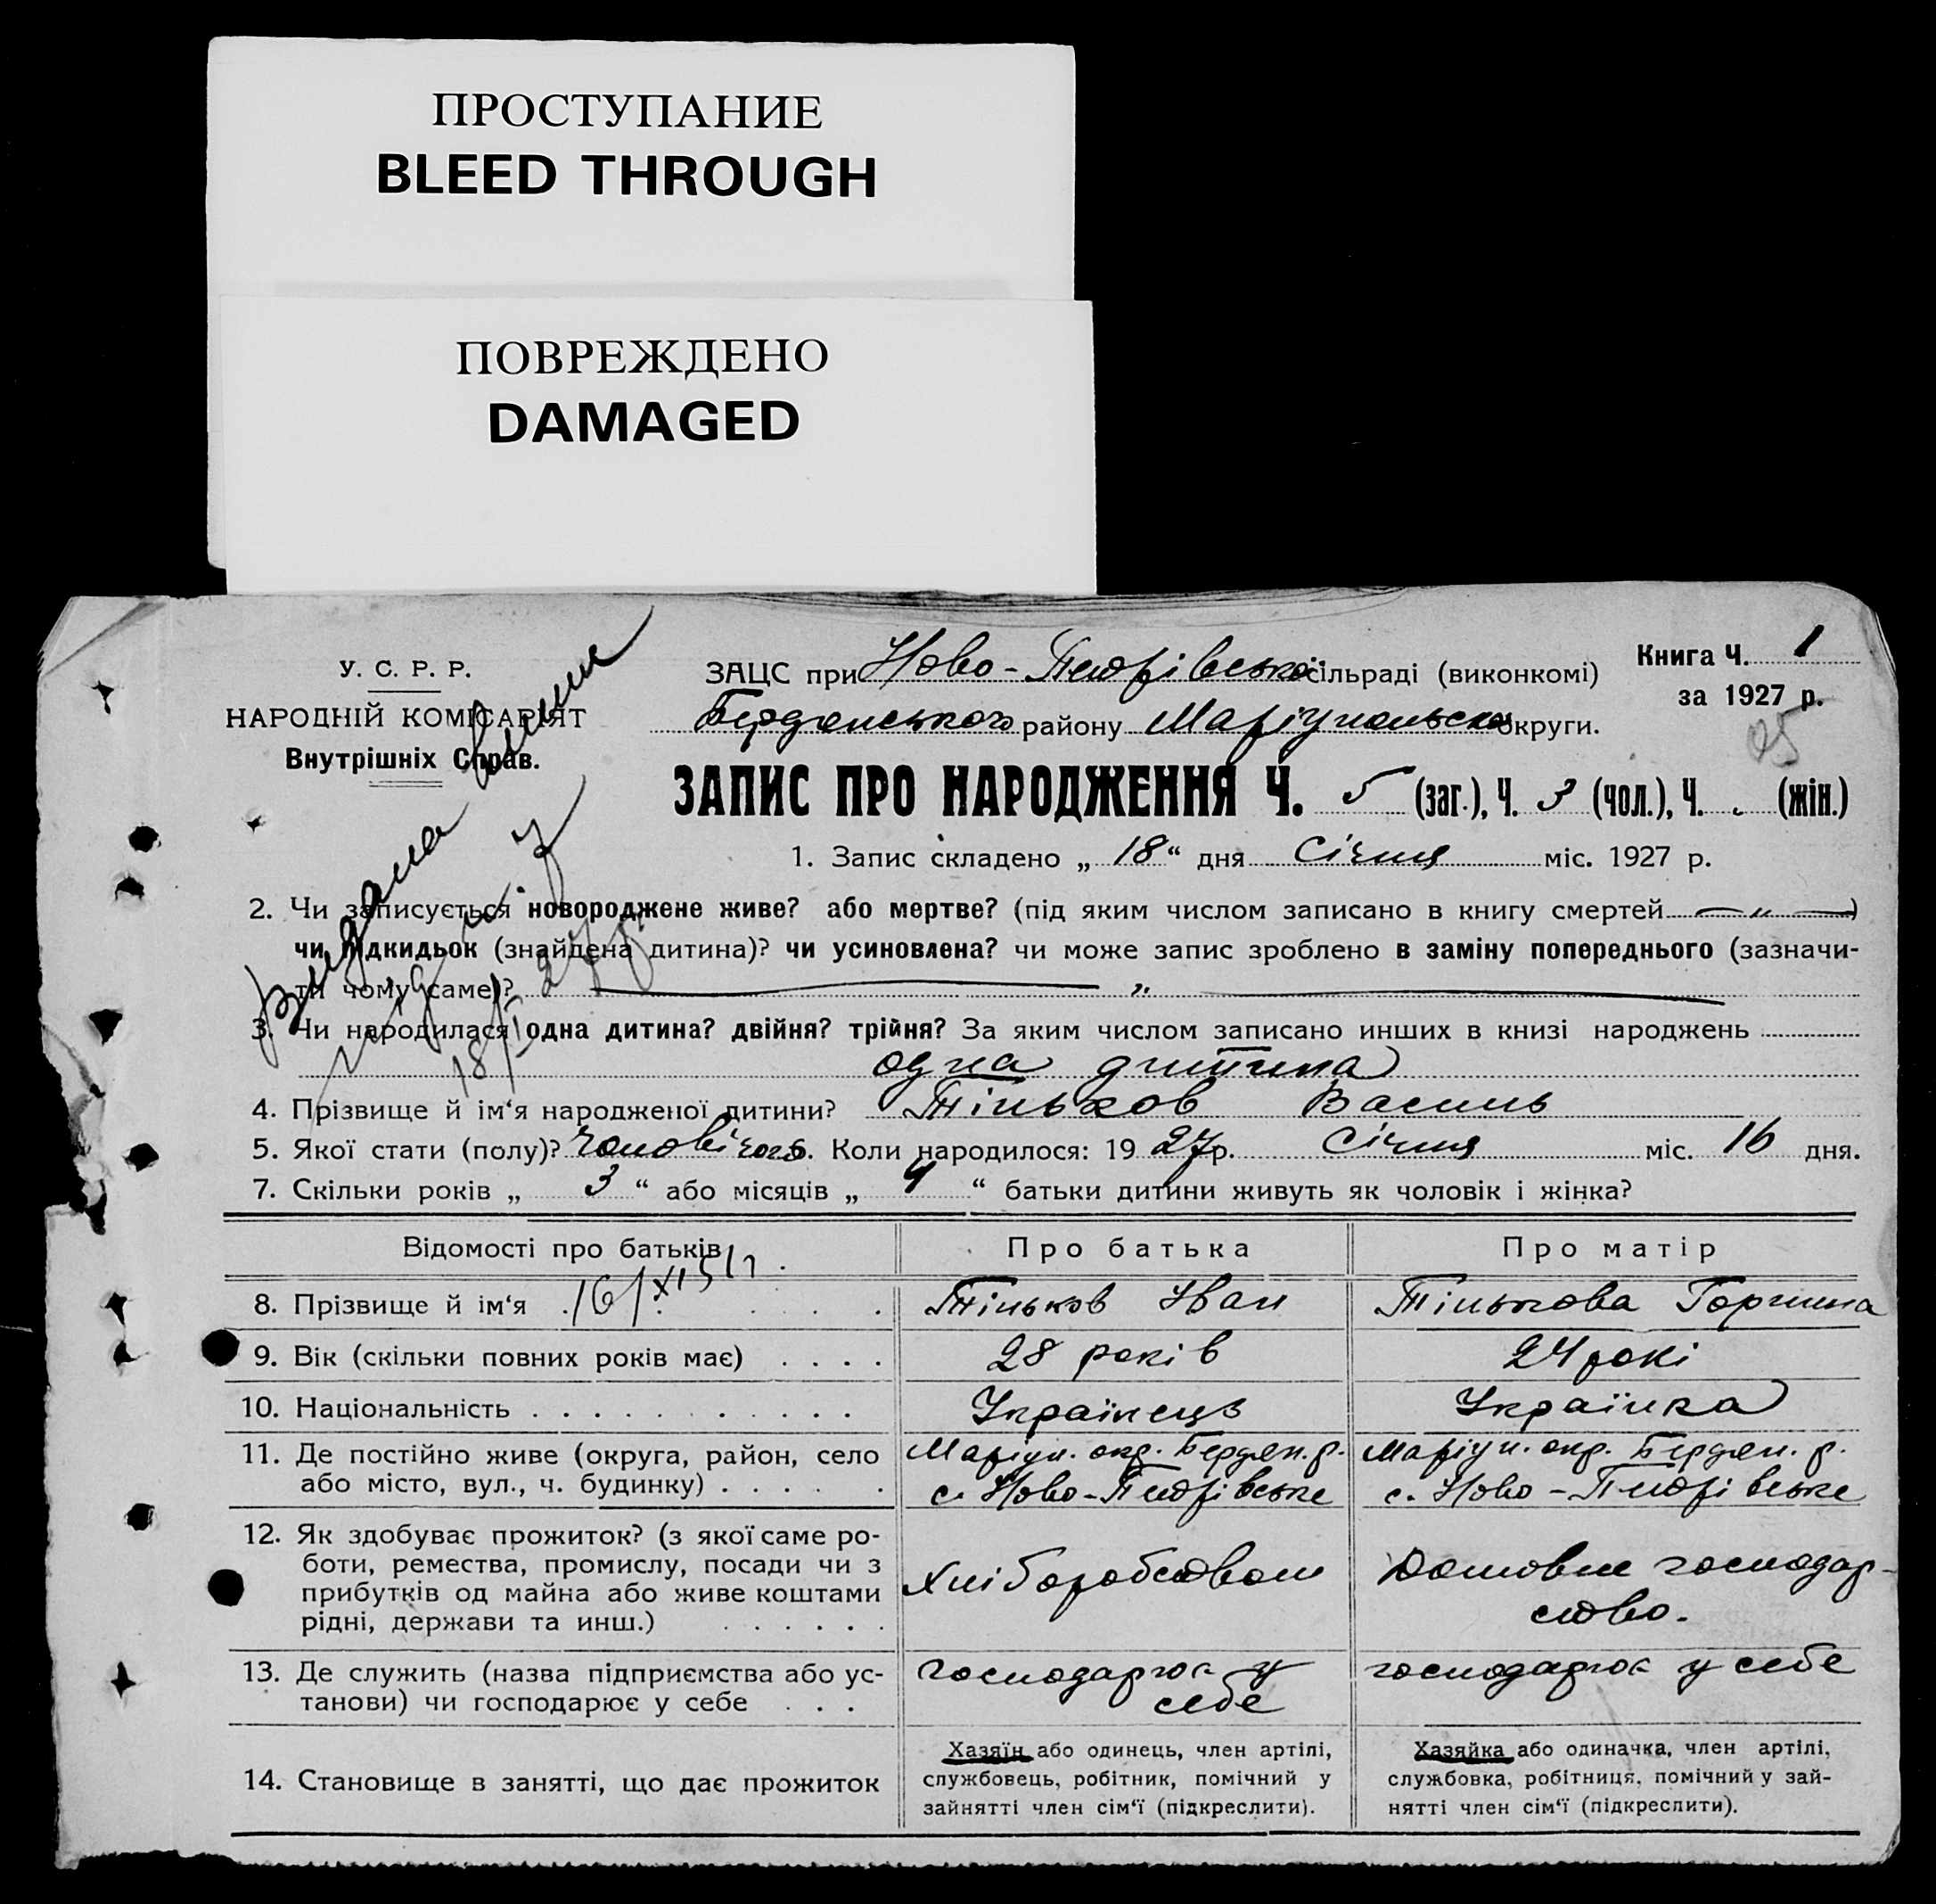 ПРОСТУПАНИЕ
BLEED THROUGH
ПОВРЕЖДЕНО
DAMAGED
У. С. Р. Р.
НАРОДНІЙ КОМІСАРІЯТ
Внутрішніх Справ.
ЗАЦС при Ново-Петрівської сільраді (виконкомі)
Бердянського району Маріупольської округи.
Книга Ч. 1
за 1927 р.
95
ЗАПИС ПРО НАРОДЖЕННЯ Ч. 5 (заг.), Ч. 3 (чол.), Ч. (жін.)
1. Запис складено „ 18 “ дня Січня міс. 1927 р.
Видана випис
18/I 27 р.
2. Чи записується новороджене живе? або мертве? (під яким числом записано в книгу смертей — „ —)
чи підкидьок (знайдена дитина)? чи усиновлена? чи може запис зроблено в заміну попереднього (зазначи-
ти чому саме)? — „ —
3. Чи народилася одна дитина? двійня? трійня? За яким числом записано инших в книзі народжень
одна дитина
4. Прізвище й ім‘я народженої дитини? Тільков Василь
5. Якої стати (полу)? чоловічого 6. Коли народилося: 19 27 р. Січня міс. 16 дня.
7. Скільки років „ 3 “ або місяців „ 4 “ батьки дитини живуть як чоловік і жінка?
Відомості про батьків Про батька Про матір
16/XI 51 г.
8. Прізвище й ім‘я Тільков Іван Тількова Горпина
9. Вік (скільки повних років має) 28 років 24 рокі
10. Національність Українець Українка
11. Де постійно живе (округа, район, село Маріуп. окр. Бердян. р. Маріуп. окр. Бердян. р.
або місто, вул., ч. будинку) с. Ново-Петрівське с. Ново-Петрівське
12. Як здобуває прожиток? (з якої саме ро-
боти, ремества, промислу, посади чи з Хліборобством Домовне господар-
прибутків од майна або живе коштами ство.
рідні, держави та инш.)
13. Де служить (назва підприємства або ус- господарює у господарює у себе
танови) чи господарює у себе себе
14. Становище в занятті, що дає прожиток
Хазяїн або одинець, член артілі,
службовець, робітник, помічний у
зайнятті член сім‘ї (підкреслити).
Хазяйка або одиначка, член артілі,
службовка, робітниця, помічний у зай-
нятті член сім‘ї (підкреслити).